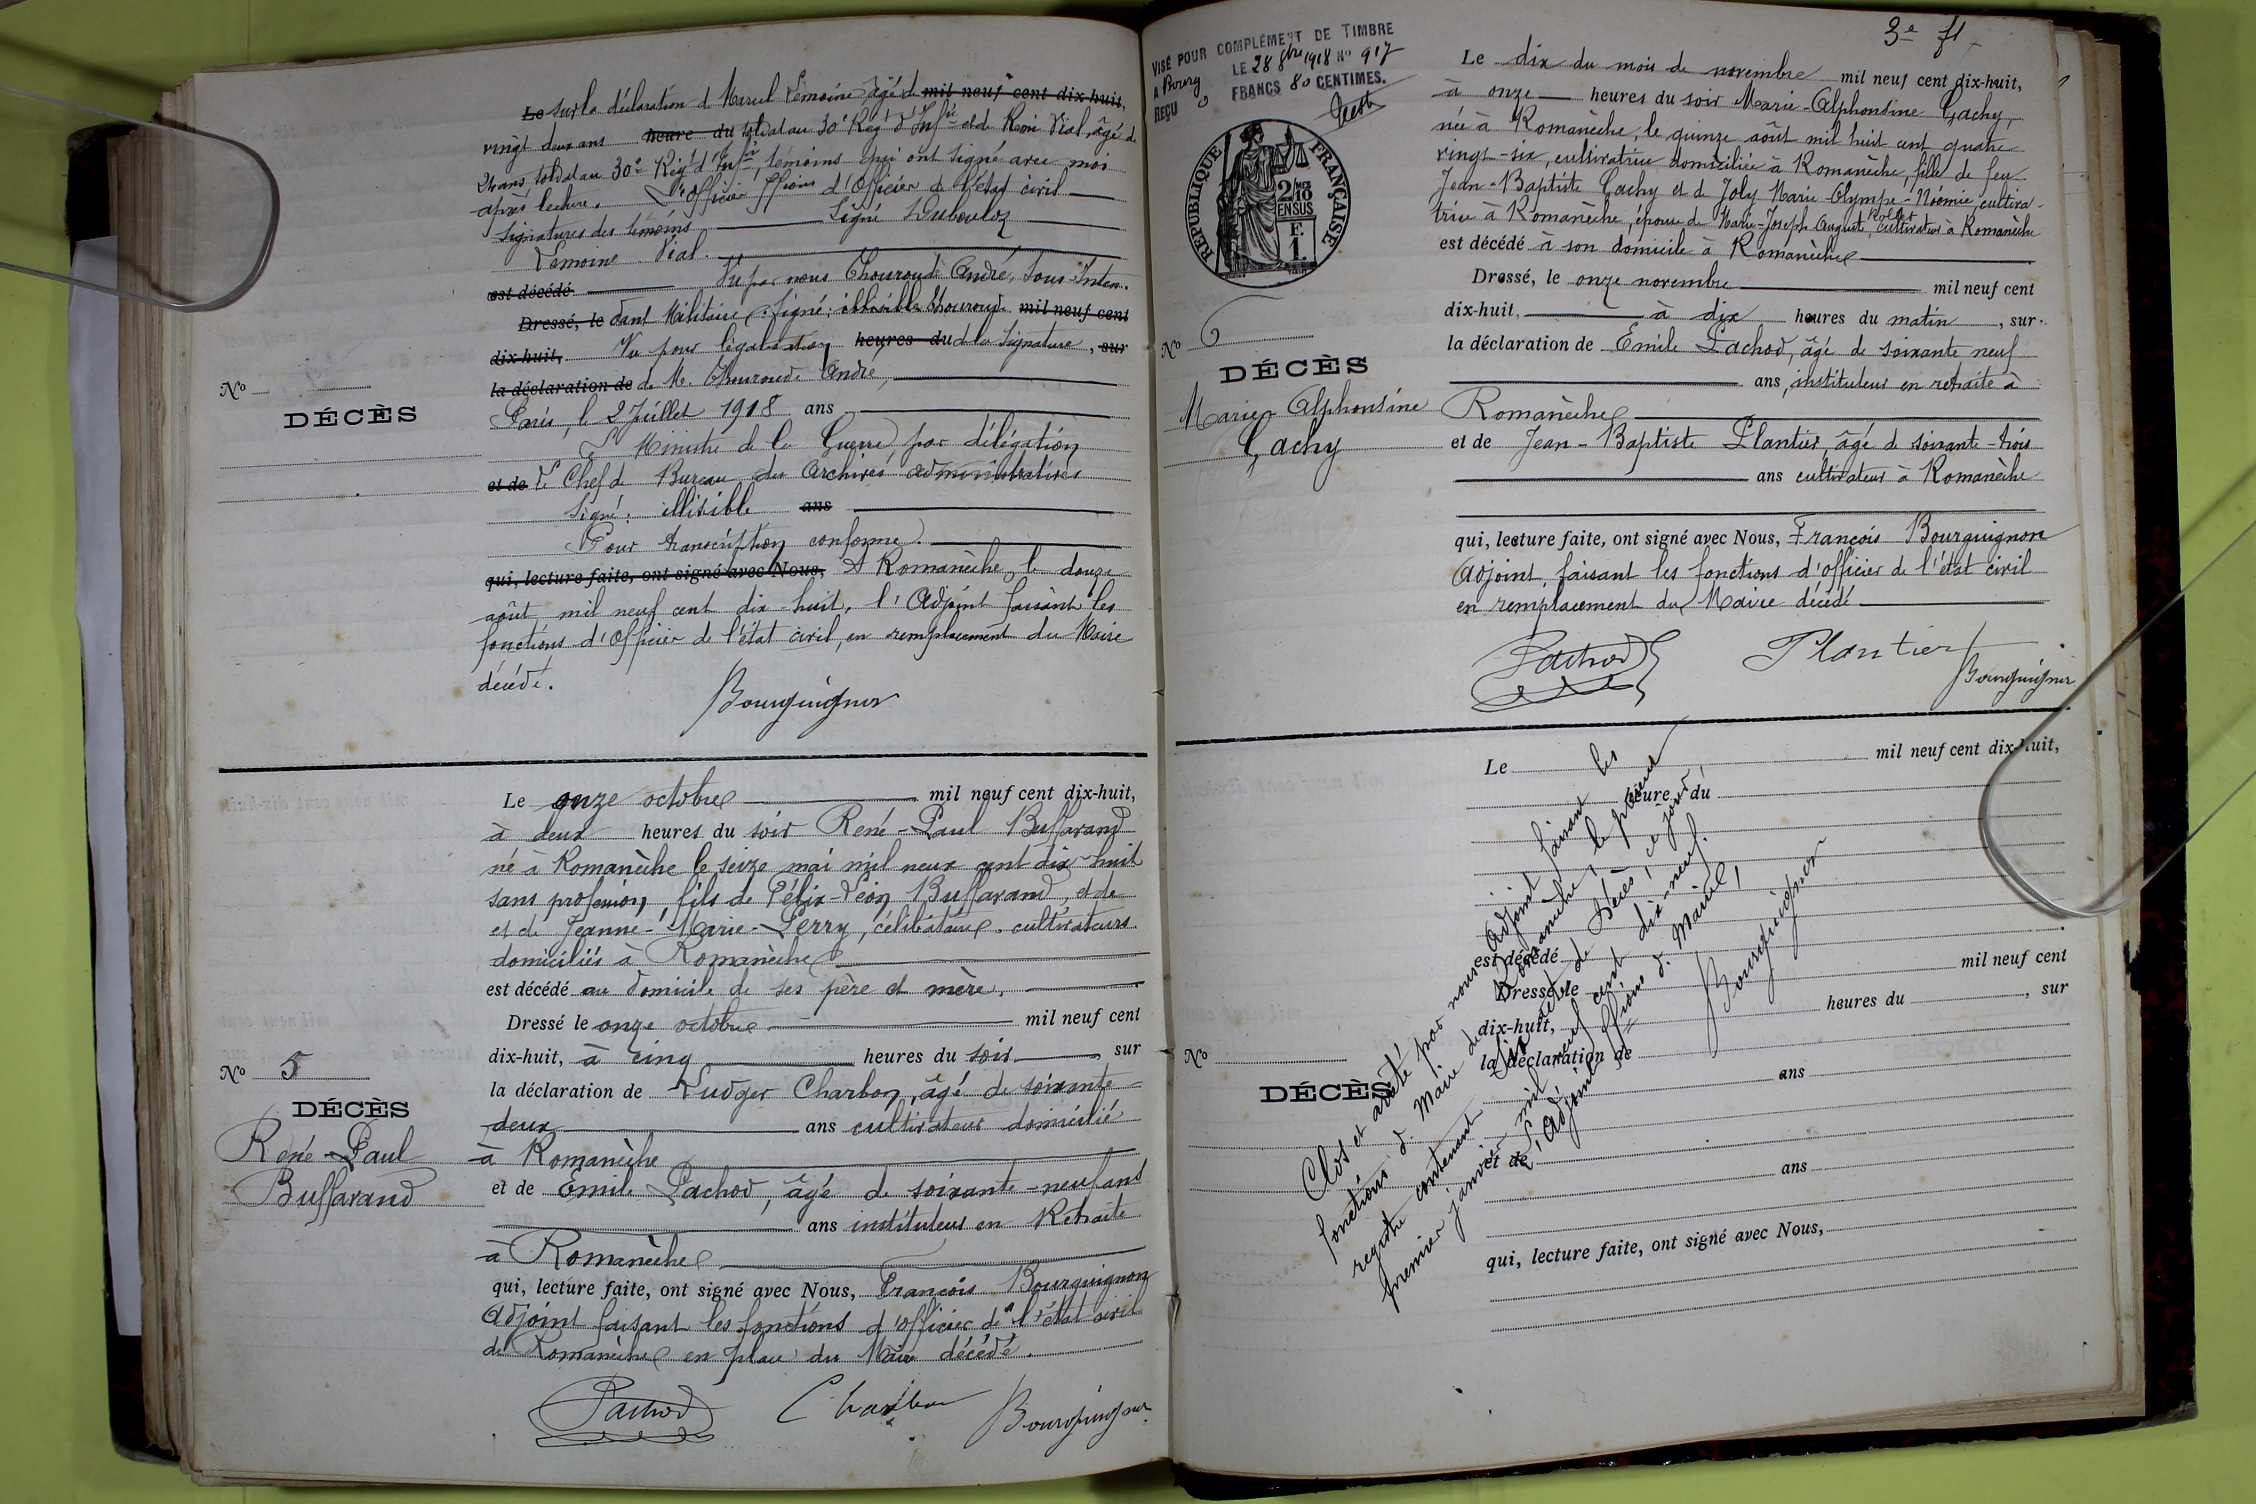 Le sur la déclaration de Marcel Lemoine, âgé de mil neuf cent dix-huit,
vingt deux ans heure du soldat au 30e Régt d'Infie et de René Vial, âgé de
ans soldat au 30e Régt d'Infie, témoins qui ont signé avec moi
après lecture. L'officier ffions d'Officier de l'état civil
Signatures des témoins Signé Dubouloz
Lemoine Vial.
est décédé Vu par nous Chouroud André, Sous-Inten-
Dressé, le dant Militaire. Signé: illisible Chouroud. mil neuf cent
dix-huit, Vu pour légalisation heures du de la Signature, sur
la déclaration de de M. Chouroud André,
Paris, le 2 Juillet 1918 ans
Le Ministre de la Guerre, par délégation
et de le Chef de Bureau des Archives administratives
Signé: illisible ans
Pour transcription conforme.
qui, lecture faite, ont signé avec Nous, A Romanèche, le douze
août mil neuf cent dix-huit, l'Adjoint faisant les
fonctions d'Officier de l'état civil, en remplacement du Maire
décédé.
Bourguignon
No
DÉCÈS
Le onze octobre mil neuf cent dix-huit,
à deux heures du soir René-Paul Buffavand
né à Romanèche le seize mai mil neuf cent dix huit
sans profession, fils de Félix-Léon Buffavand, et de
et de Jeanne-Marie-Perry, célibataire. cultivateurs
domiciliés à Romanèche
est décédé au domicile de ses père et mère.
Dressé le onze octobre mil neuf cent
dix-huit, à cinq heures du soir, sur
la déclaration de Ludger Charbon, âgé de soixante-
deux ans cultivateur domicilié
à Romanèche
et de Emile Pachod, âgé de soixante-neuf ans
ans instituteur en Retraite
à Romanèche
qui, lecture faite, ont signé avec Nous, François Bourguignon
Adjoint faisant les fonctions d'officier de l'état civil
de Romanèche en place du Maire décédé.
Pachod Charbon Bourguignon
No 5
DÉCÈS
René-Paul
Buffavand
VISÉ POUR COMPLÉMENT DE TIMBRE
A Bourg LE 28 8bre 1918 No 917
REÇU 0 FRANCS 80 CENTIMES.
RÉPUBLIQUE FRANÇAISE
2/10
EN SUS
F.
1.
3e ft
Le dix du mois de novembre mil neuf cent dix-huit,
à onze heures du soir Marie-Alphonsine Cachy,
née à Romanèche, le quinze août mil huit cent quatre
vingt-six, cultivatrice domiciliée à Romanèche, fille de feu
Jean-Baptiste Cachy et de Joly Marie Olympe-Noémie, cultiva-
trice à Romanèche, épouse de Marie-Joseph Auguste, cultivateur à Romanèche
est décédé à son domicile à Romanèche
Dressé, le onze novembre mil neuf cent
dix-huit, à dix heures du matin, sur
la déclaration de Emile Pachod, âgé de soixante neuf
ans, instituteur en retraite à
Romanèche
et de Jean-Baptiste Plantier, âgé de soixante-trois
ans cultivateur à Romanèche
qui, lecture faite, ont signé avec Nous, François Bourguignon
Adjoint, faisant les fonctions d'officier de l'état civil
en remplacement du Maire décédé
Pachod Plantier
Bourguignon
No 6
DÉCÈS
Marie Alphonsine
Cachy
Le mil neuf cent dix-huit,
heure du
est décédé
Dressé, le mil neuf cent
dix-huit, heures du, sur
la déclaration de
ans
et de
ans
qui, lecture faite, ont signé avec Nous,
No
DÉCÈS
Clos et arrêté par nous Adjoint faisant les
fonctions de Maire de Romanèche, le présent
registre contenant Six actes de Décès, ce jour,
premier janvier mil neuf cent dix-neuf.
L'Adjoint ffions de Maire,
Bourguignon